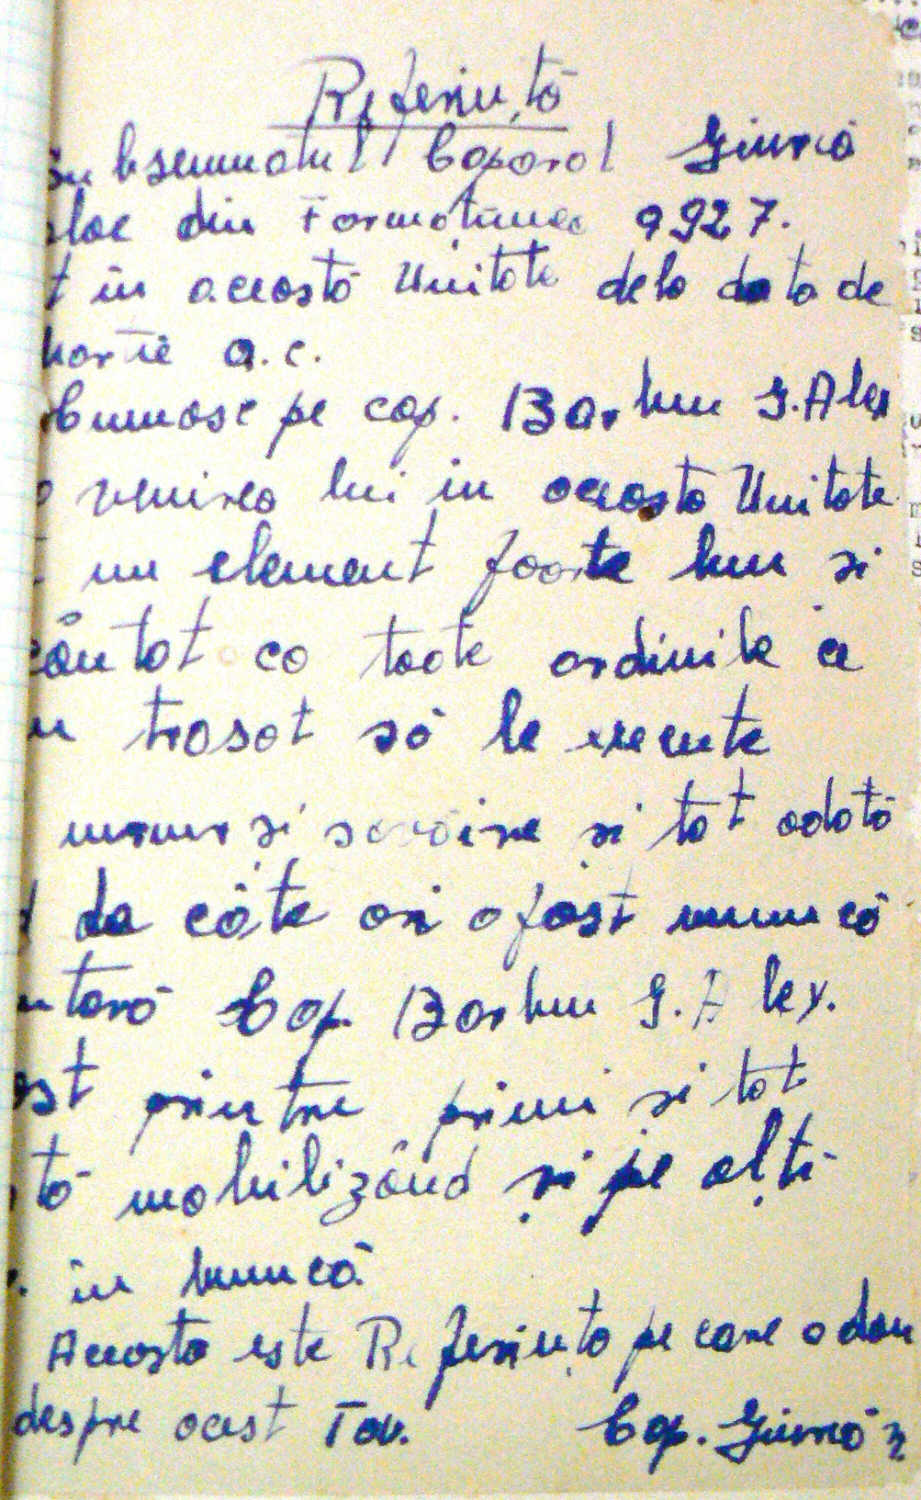 Referință
Subsemnatul Caporal Giurcă
din Formațiunea 9927.
în această Unitate dela data de
Martie a.c.
cunosc pe cap. Barbu G. Alex
venirea lui in aceasta Unitate
un element foarte bun si
căutat ca toate ordinile ce
trasat să le execute
si si tot odată
da câte ori a fost muncă
Cap. Barbu G. Alex.
printre primi si tot
tă mobilizând și pe alți
în muncă
Aceasta este Referința pe care o dau
despre acest Tov. Cap. Giurcă